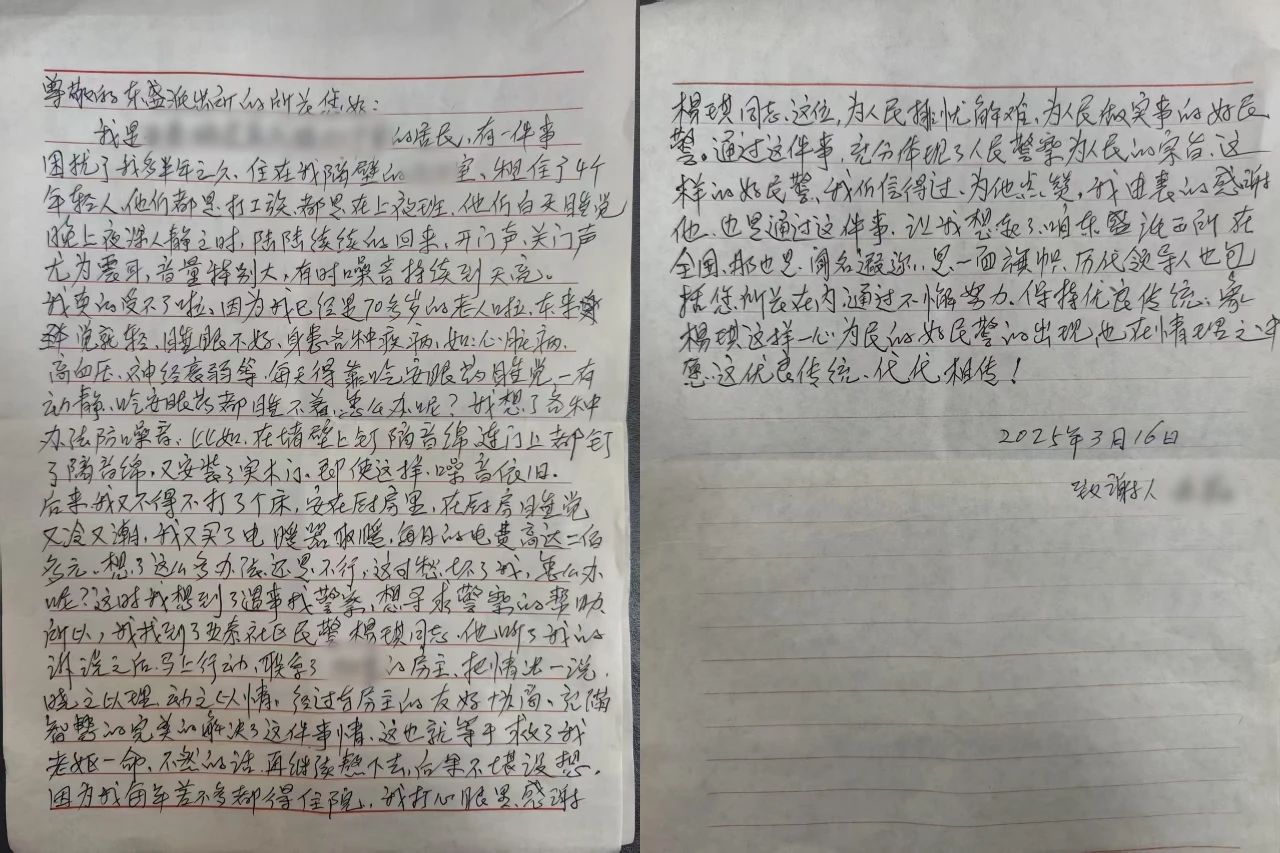 尊敬的东盛派出所的所长您好：
我是 的居民，有一件事
困扰了我多半年之久、住在我隔壁的 室、租住了4个
年轻人、他们都是打工族、都是在上夜班、他们白天睡觉
晚上夜深人静之时，陆陆续续的回来，开门声、关门声
尤为震耳，音量特别大，有时噪音持续到天亮。
我真的受不了啦，因为我已经是70多岁的老人啦，本来
觉就轻、睡眠不好、身患各种疾病，如：心脏病，
高血压、神经衰弱等，每天得靠吃安眠药睡觉，一有
动静、吃安眠药都睡不着，怎么办呢？我想了各种
办法防噪音，比如，在墙壁上钉隔音绵连门上都钉
了隔音绵，又安装了实木门、即使这样、噪音依旧。
后来，我又不得不打了个床，安在厨房里，在厨房睡觉
又冷又潮，我又买了电暖器取暖，每月的电费高达二佰
多元、想了这么多办法还是不行，这可愁坏了我，怎么办
呢？这时我想到了遇事找警察，想寻求警察的帮助
所以，我找到了亚泰社区民警杨琪同志、他听了我的
诉说之后，马上行动，联系了 的房主、把情况一说，
晓之以理动之以情，经过与房主的友好协商、充满
智慧的完美的解决了这件事情、这也就等于救了我
老妪一命、不然的话，再继续熬下去，后果不堪设想，
因为我每年差不多都得住院，我打心眼里感谢
杨琪同志，这位，为人民排忧解难、为人民做实事的好民
警。通过这件事，充分体现了人民警察为人民的宗旨、这
样的好民警，我们信得过、为他点赞，我由衷的感谢
他、也是通过这件事，让我想起了咱东盛派出所在
全国、那也是，闻名遐迩、是一面旗帜，历代领导人也包
括您所长在内通过不懈努力、保持优良传统，象
杨琪这样一心为民的好民警的出现，也在情理之中
愿这优良传统、代代相传！
2025年3月16日
致谢人